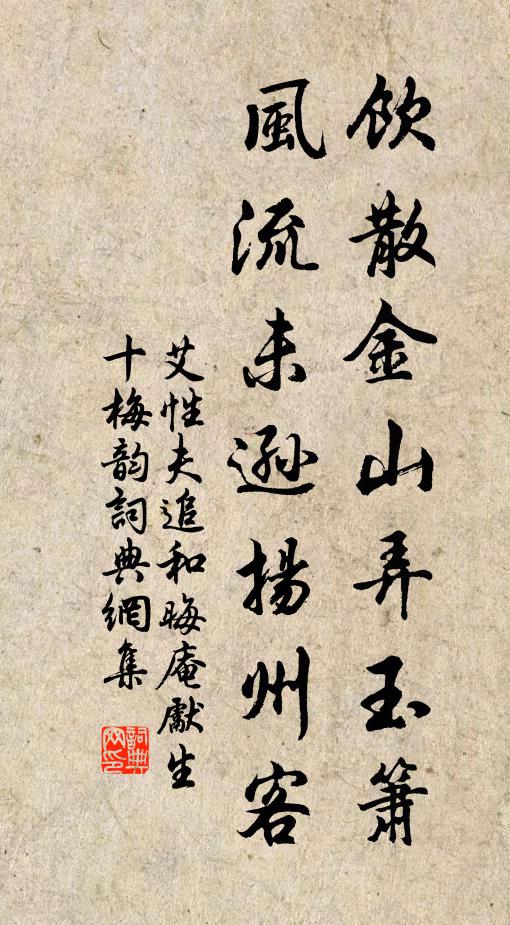 飲散金山弄玉簫
風流未遜揚州客
艾性夫追和晦庵獻生
十梅韵詞典網集
詞典網印